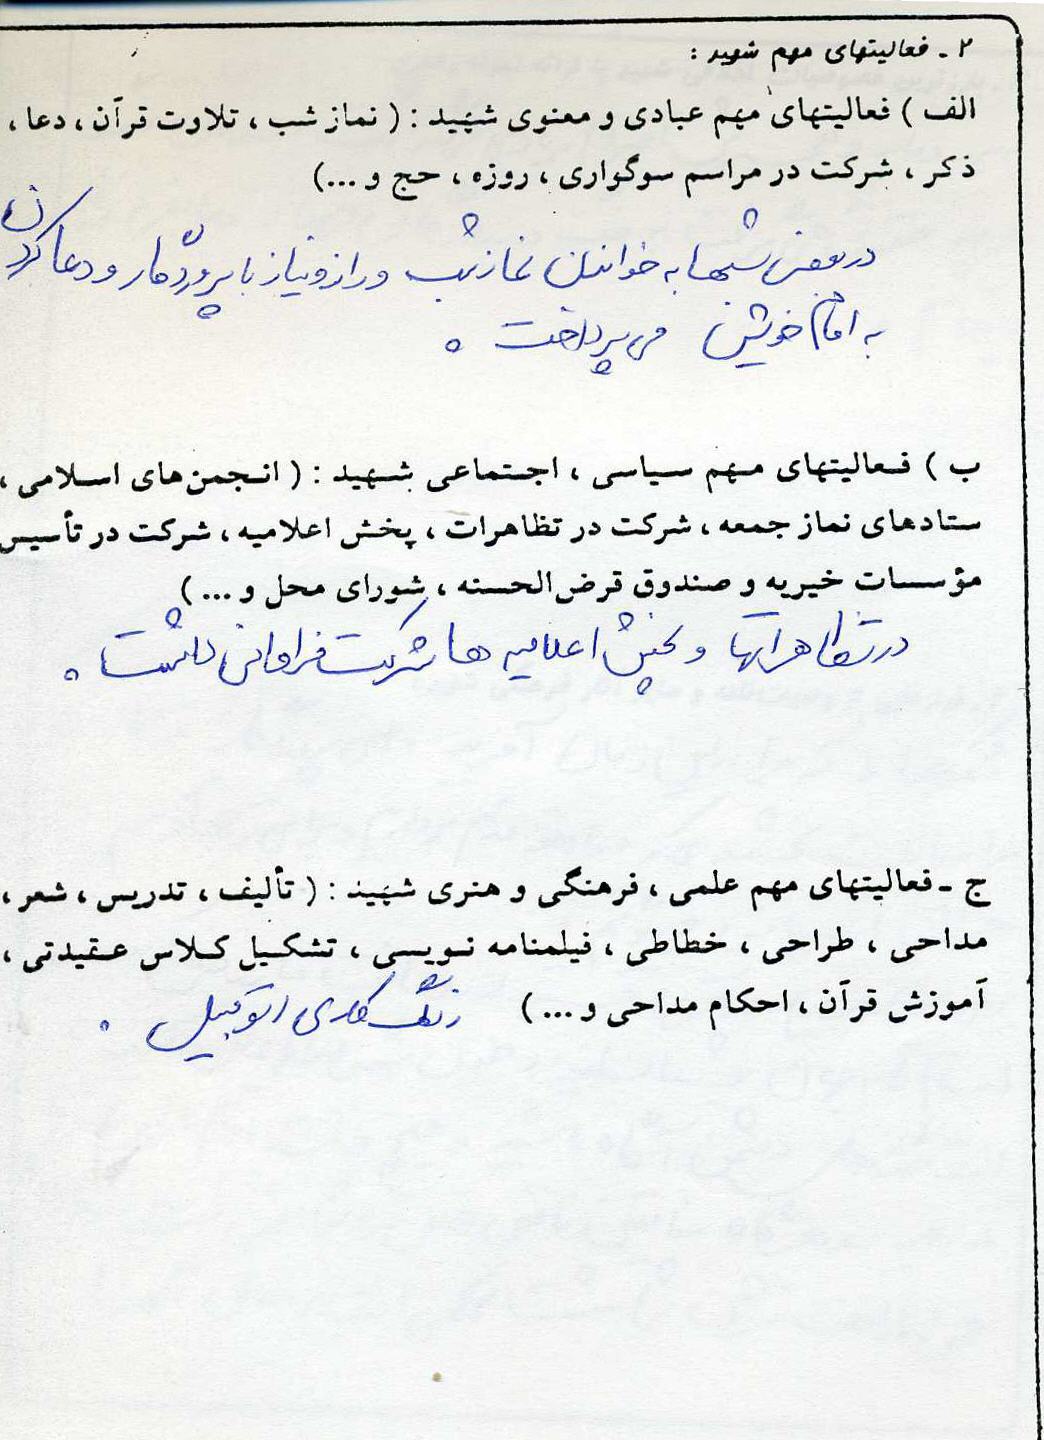 ۲ ـ فعالیتهای مهم شهید :
الف ) فعالیتهای مهم عبادی و معنوی شهید : ( نماز شب ، تلاوت قرآن ، دعا ،
ذکر ، شرکت در مراسم سوگواری ، روزه ، حج و ...)
در بعضی شبها به خواندن نماز شب و راز و نیاز با پروردگار و دعا کردن
به امام خویش می پرداخت .
ب ) فعالیتهای مهم سیاسی ، اجتماعی شهید : ( انجمن‌های اسلامی ،
ستادهای نماز جمعه ، شرکت در تظاهرات ، پخش اعلامیه ، شرکت در تأسیس
مؤسسات خیریه و صندوق قرض‌الحسنه ، شورای محل و ... )
در تظاهراتها و پخش اعلامیه ها شرکت فراوانی داشت .
ج ـ فعالیتهای مهم علمی ، فرهنگی و هنری شهید : ( تألیف ، تدریس ، شعر ،
مداحی ، طراحی ، خطاطی ، فیلمنامه نویسی ، تشکیل کلاس عقیدتی ،
آموزش قرآن ، احکام مداحی و ... ) رنگ کاری اتومبیل .